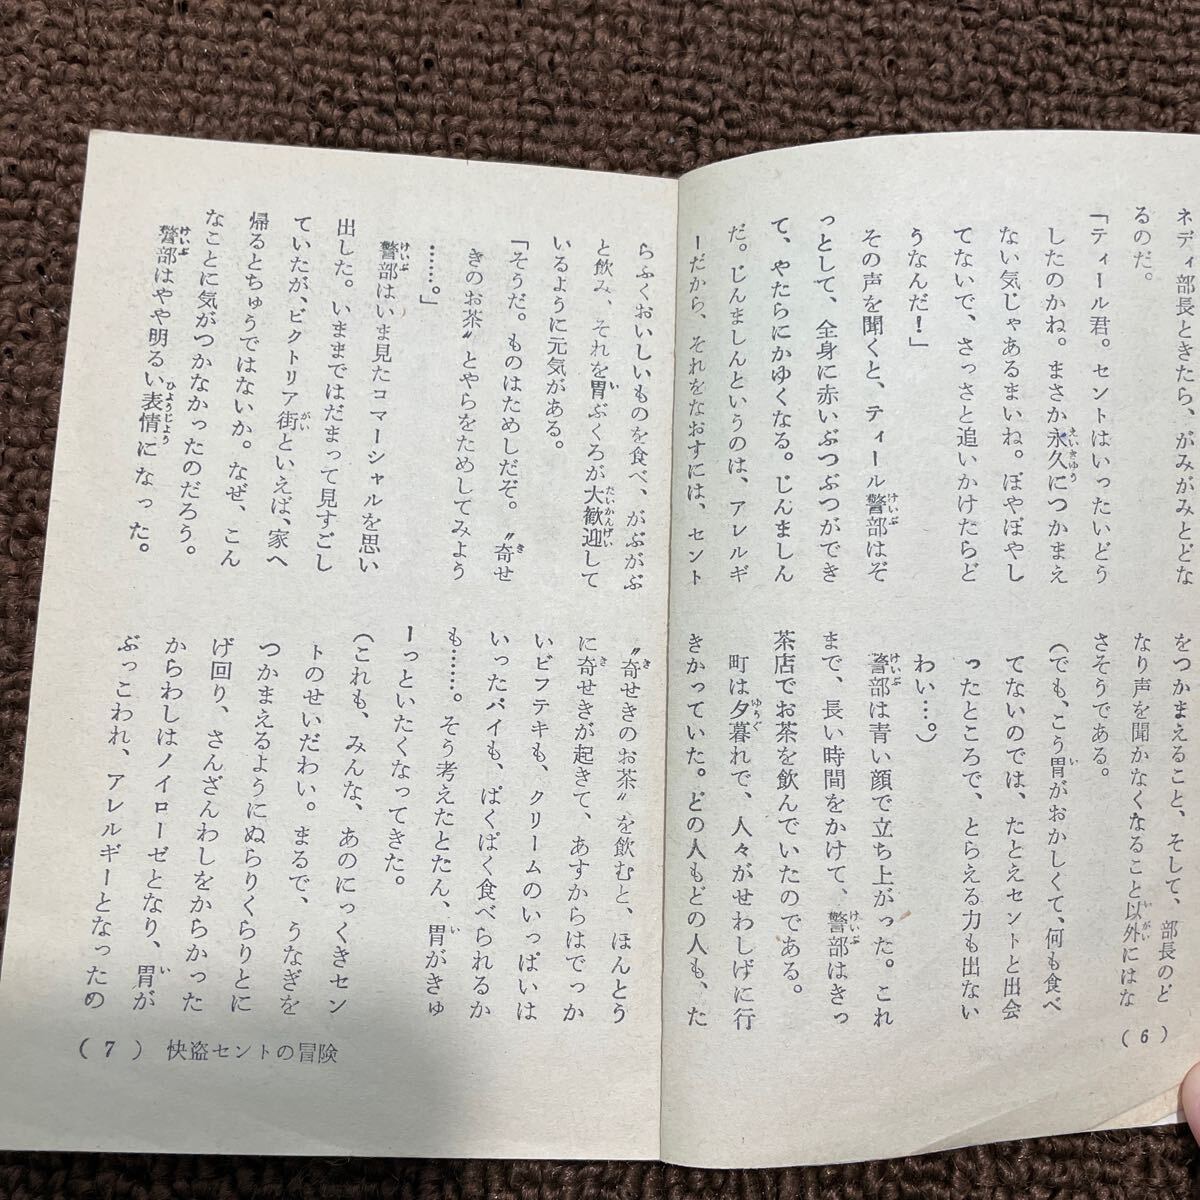 ネディ部長ときたら、がみがみとどな
るのだ。
「ティール君。セントはいったいどう
したのかね。まさか永久につかまえ
ない気じゃあるまいね。ぼやぼやし
てないで、さっさと追いかけたらど
うなんだ！」
その声を聞くと、ティール警部はぞ
っとして、全身に赤いぶつぶつができ
て、やたらにかゆくなる。じんましん
だ。じんましんというのは、アレルギ
ーだから、それをなおすには、セント
をつかまえること、そして、部長のど
なり声を聞かなくなること以外にはな
さそうである。
（でも、こう胃がおかしくて、何も食べ
てないのでは、たとえセントと出会
ったところで、とらえる力も出ない
わい…。）
警部は青い顔で立ち上がった。これ
まで、長い時間をかけて、警部はきっ
茶店でお茶を飲んでいたのである。
町は夕暮れで、人々がせわしげに行
きかっていた。どの人もどの人も、た
（6）
らふくおいしいものを食べ、がぶがぶ
と飲み、それを胃ぶくろが大歓迎して
いるように元気がある。
「そうだ。ものはためしだぞ。〝奇せ
きのお茶〟とやらをためしてみよう
……。」
警部はいま見たコマーシャルを思い
出した。いままではだまって見すごし
ていたが、ビクトリア街といえば、家へ
帰るとちゅうではないか。なぜ、こん
なことに気がつかなかったのだろう。
警部はやや明るい表情になった。
〝奇せきのお茶〟を飲むと、ほんとう
に奇せきが起きて、あすからはでっか
いビフテキも、クリームのいっぱいは
いったパイも、ぱくぱく食べられるか
も……。そう考えたとたん、胃がきゅ
ーっといたくなってきた。
（これも、みんな、あのにっくきセン
トのせいだわい。まるで、うなぎを
つかまえるようにぬらりくらりとに
げ回り、さんざんわしをからかった
からわしはノイローゼとなり、胃が
ぶっこわれ、アレルギーとなっため
（7）快盗セントの冒険